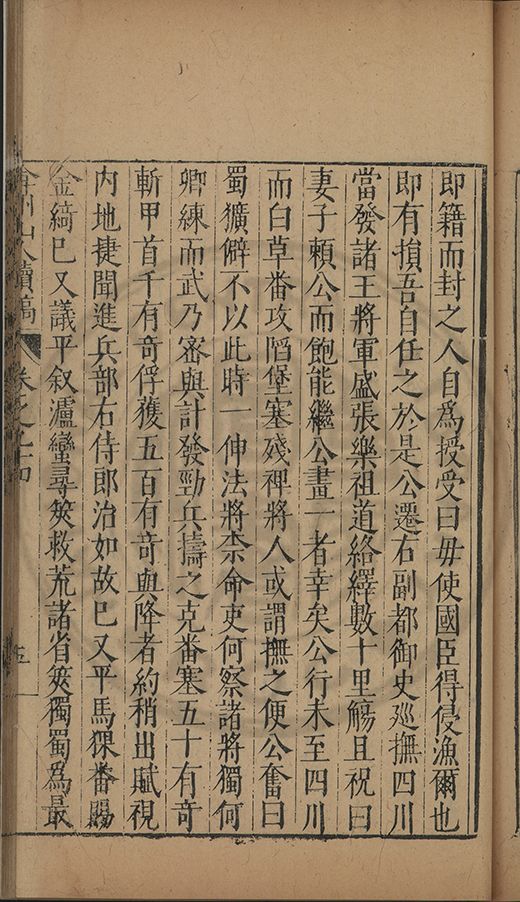 即籍而封之人自爲授受曰毋使國臣得侵漁爾也
即有損吾自任之於是公遷右副都御史巡撫四川
當發諸王將軍盛張樂祖道絡繹數十里觴且祝曰
妻子頼公而飽能繼公畫一者幸矣公行未至四川
而白草番攻䧟堡塞殘裨將人或謂撫之便公奮曰
蜀獷僻不以此時一伸法將柰命吏何察諸將獨何
卿練而武乃審與計發勁兵擣之克番塞五十有奇
斬甲首千有奇俘獲五百有奇與降者約稍出賦視
内地捷聞進兵部右侍郎治如故已又平馬猓番賜
金綺已又議平叙瀘蠻尋筴救荒諸省筴獨蜀為最
弇州山人續稿 卷之 五